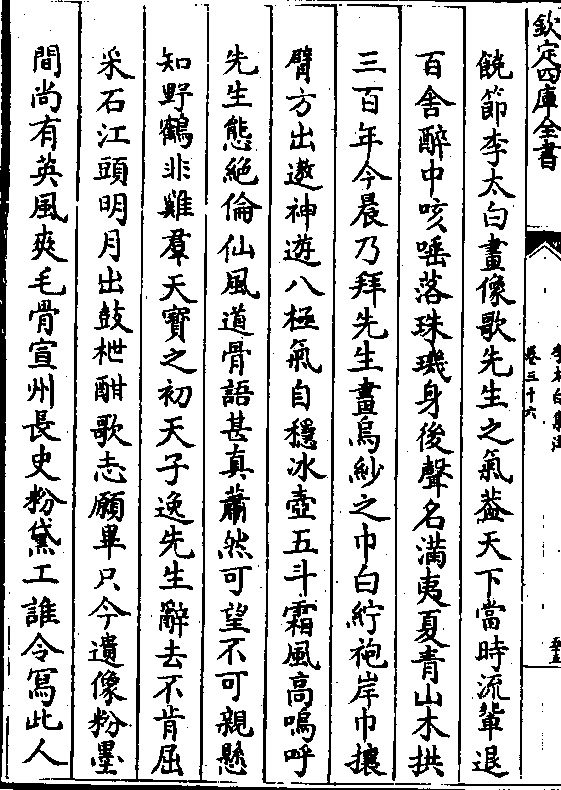 欽定四庫全書
李太白集注
卷三十六
饒節李太白畫像歌先生之氣葢天下當時流輩退
百舍醉中咳唾落珠璣身後聲名滿夷夏青山木拱
三百年今晨乃拜先生畫烏紗之巾白紵袍岸巾攘
臂方出遨神遊八極氣自穩冰壺五斗霜風高嗚呼
先生態絶倫仙風道骨語甚真蕭然可望不可親懸
知野鶴非雞羣天寶之初天子逸先生辭去不肯屈
采石江頭明月出鼓枻酣歌志願畢只今遺像粉墨
間尚有英風爽毛骨宣州長史粉黛工誰令寫此人